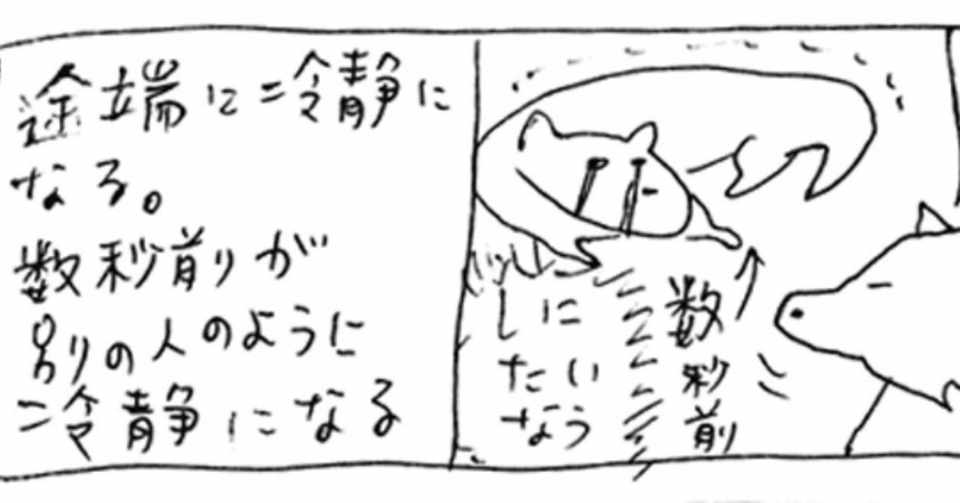 途端に冷静に
なる。
数秒前が
別の人のように
冷静になる
数秒前
しにたいなう